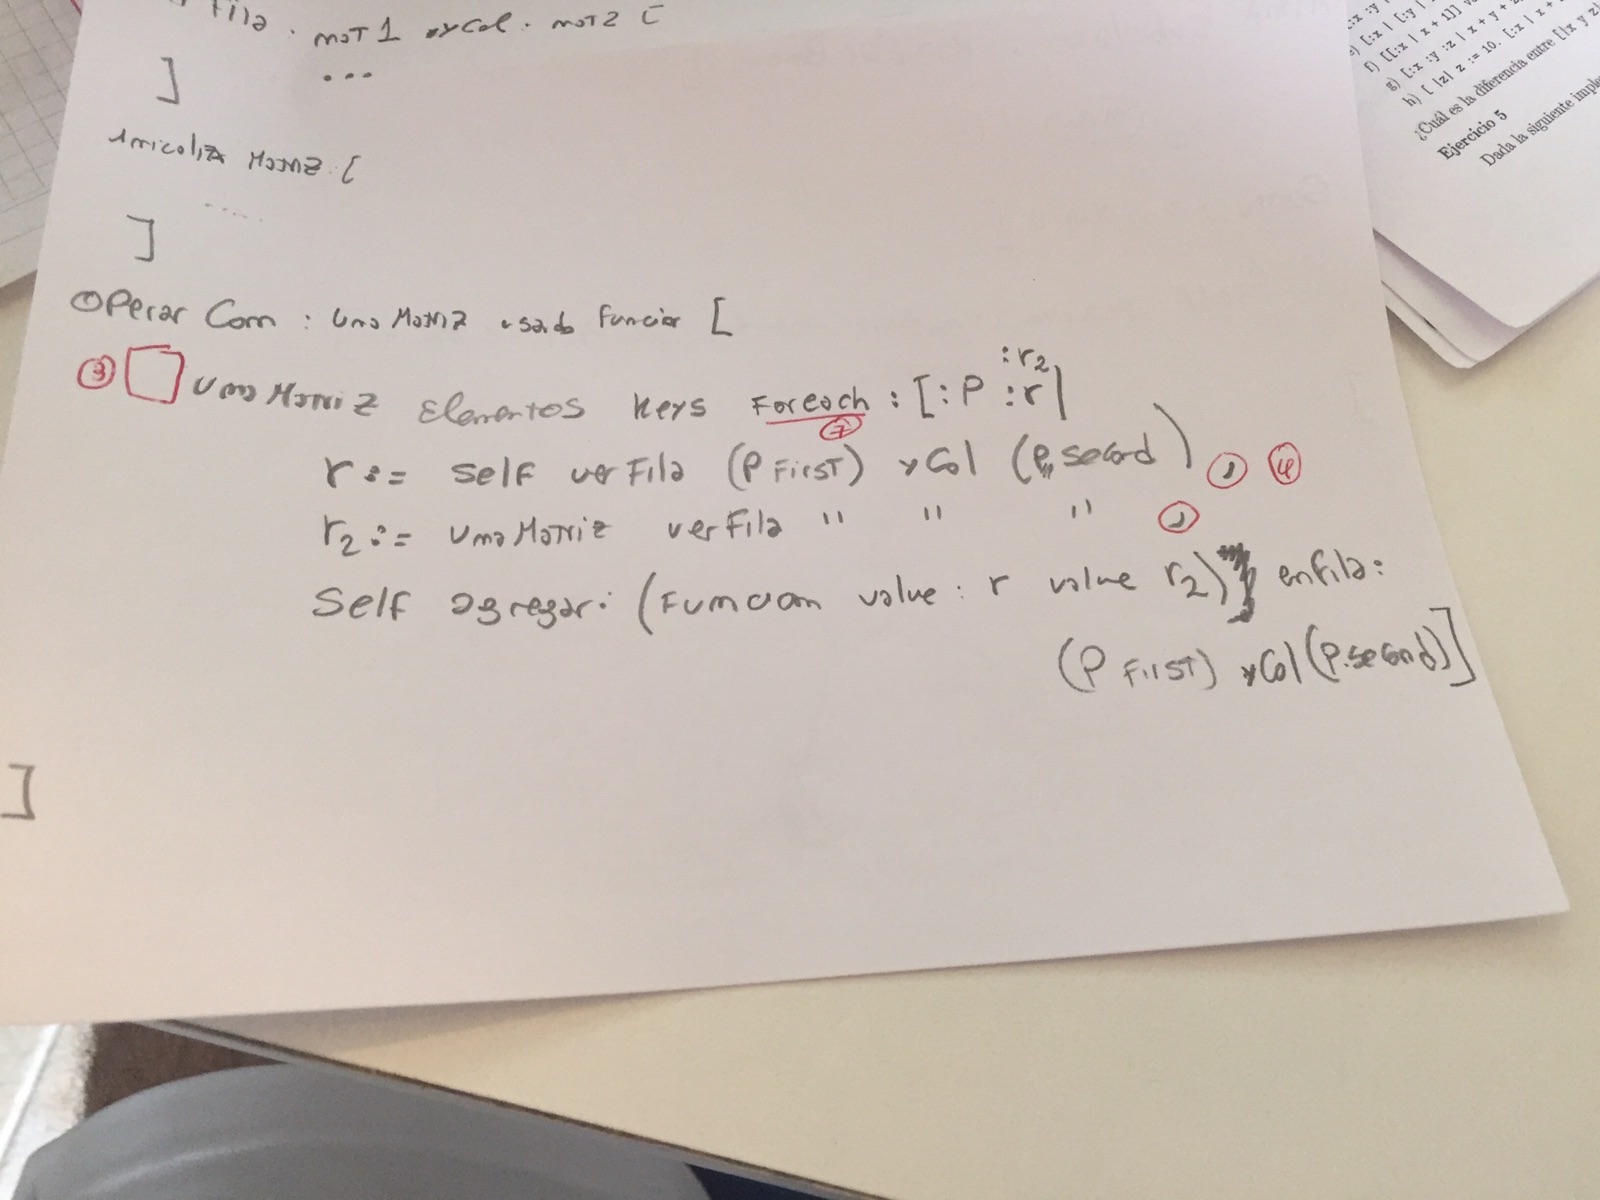 Fila. mot1 xyCol. mot2 [
...
]
Matriz [
.....
]
Operar Com : Una Matriz usando funcion [
③ Una Matriz Elementos keys Foreach : [:P :r :r2 |
r := self verFila (P First) yCol (P second) ① ④
r2 := una Matriz verFila " " " ①
Self agregar: (Funcion value: r value r2) enfila:
(P First) yCol (P.second)]
]
:x :y
e) [:x | [:y |
f) [[:x | x + 1]]
g) [:x :y :z | x + y +
h) [ |z| z := 10. [:x | x +
¿Cuál es la diferencia entre [|x y z|
Ejercicio 5
Dada la siguiente imple